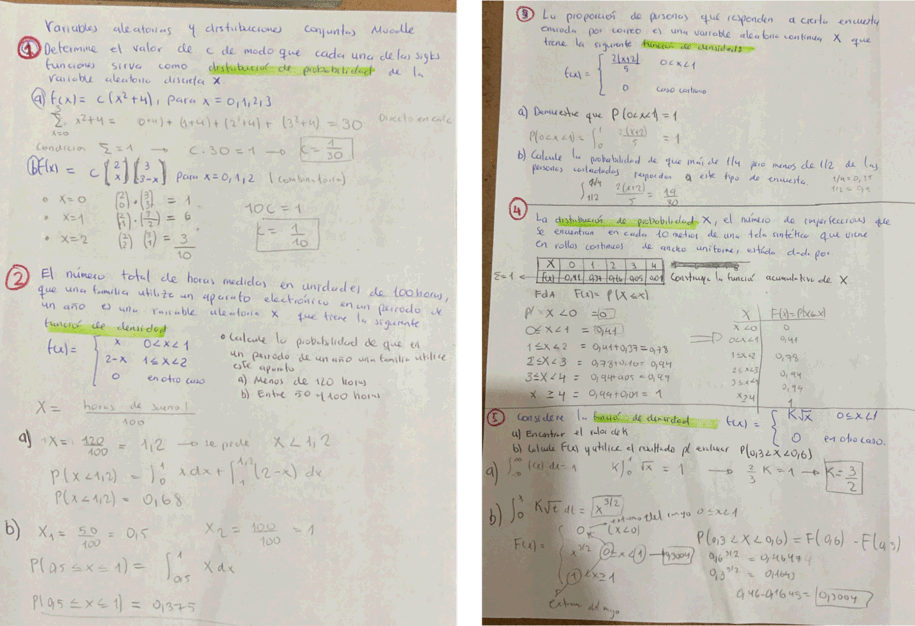 Variables aleatorias y distribuciones conjuntas Moodle
① Determine el valor de c de modo que cada una de las sigtes
funciones sirva como distribución de probabilidad de la
variable aleatoria discreta X
ⓐ f(x) = c(x²+4), para x = 0,1,2,3
3 Σ x=0 x²+4 = (0+4) + (1+4) + (2²+4) + (3²+4) = 30 Directo en calc
Condición Σ=1 → c·30=1 → c = 1/30
ⓑ f(x) = c (2 x) (3 3-x) para x=0,1,2 (combinatoria)
• x=0 (2 0)·(3 3) = 1
• x=1 (2 1)·(3 2) = 6
• x=2 (2 2)·(3 1) = 3
10
10C=1
C = 1/10
② El número total de horas medidas en unidades de 100 horas,
que una familia utilize un aparato electrónico en un periodo de
un año es una variable aleatoria X que tiene la siguiente
función de densidad
f(x) = { x 0<x<1
2-x 1≤x<2
0 en otro caso
• Calcule la probabilidad de que en
un periodo de un año una familia utilice
este aparato
a) Menos de 120 horas
b) Entre 50 y 100 horas
X = horas de 100
a) X = 120/100 = 1,2 → se pide X < 1,2
P(X<1,2) = ∫₀¹ x dx + ∫₁^1,2 (2-x) dx
P(X<1,2) = 0,68
b) X₁ = 50/100 = 0,5 X₂ = 100/100 = 1
P(0,5 ≤ x ≤ 1) = ∫ 0,5 1 x dx
P(0,5 ≤ x ≤ 1) = 0,375
③ La proporción de personas que responden a cierta encuesta
enviada por correo es una variable aleatoria continua X que
tiene la siguiente función de densidad
f(x) = { 2(x+2)/5 0<x<1
0 caso contrario
a) Demuestre que P(0<x<1) = 1
P(0<x<1) = ∫₀¹ 2(x+2)/5 = 1
b) Calcule la probabilidad de que más de 1/4 pero menos de 1/2 de las
personas contactadas respondan a este tipo de encuesta.
1/4=0,25
1/2=0,5
∫ 1/2 1/4 2(x+2)/5 = 19/80
④
La distribución de probabilidad X, el número de imperfecciones que
se encuentran en cada 10 metros de una tela sintética que viene
en rollos continuos de ancho uniforme, estáda dada por
X 0 1 2 3 4
Σ=1 ← f(x) 0,41 0,37 0,16 0,05 0,01 Construya la función acumulativa de X
FdA F(x) = P(X≤x)
P' X<0 = 0
0≤x<1 = 0,41
1≤x<2 = 0,41+0,37=0,78
2≤x<3 = 0,78+0,16=0,94
3≤x<4 = 0,94+0,05=0,99
x≥4 = 0,99+0,01=1
X F(x)=P(X≤x)
x<0 0
0<x<1 0,41
1≤x<2 0,78
2≤x<3 0,94
3≤x<4 0,99
x≥4 1
⑤ Considere la función de densidad f(x) = { K√x 0≤x<1
0 en otro caso.
a) Encontrar el valor de K
b) Calcule F(x) y utilice el resultado p' evaluar P(0,3<X<0,6)
a) ∫ f(x) dx=1 K∫₀¹ √x = 1 → 2/3 K = 1 → K = 3/2
b) ∫₀ˣ K√t dt = x^3/2
F(x) = { 0 (x<0)
x^3/2 0≤x<1 → 0,3004
1 x≥1
P(0,3<X<0,6) = F(0,6) - F(0,3)
0,6^3/2 = 0,46474
0,3^3/2 = 0,1643
0,46-0,1643= 0,3004